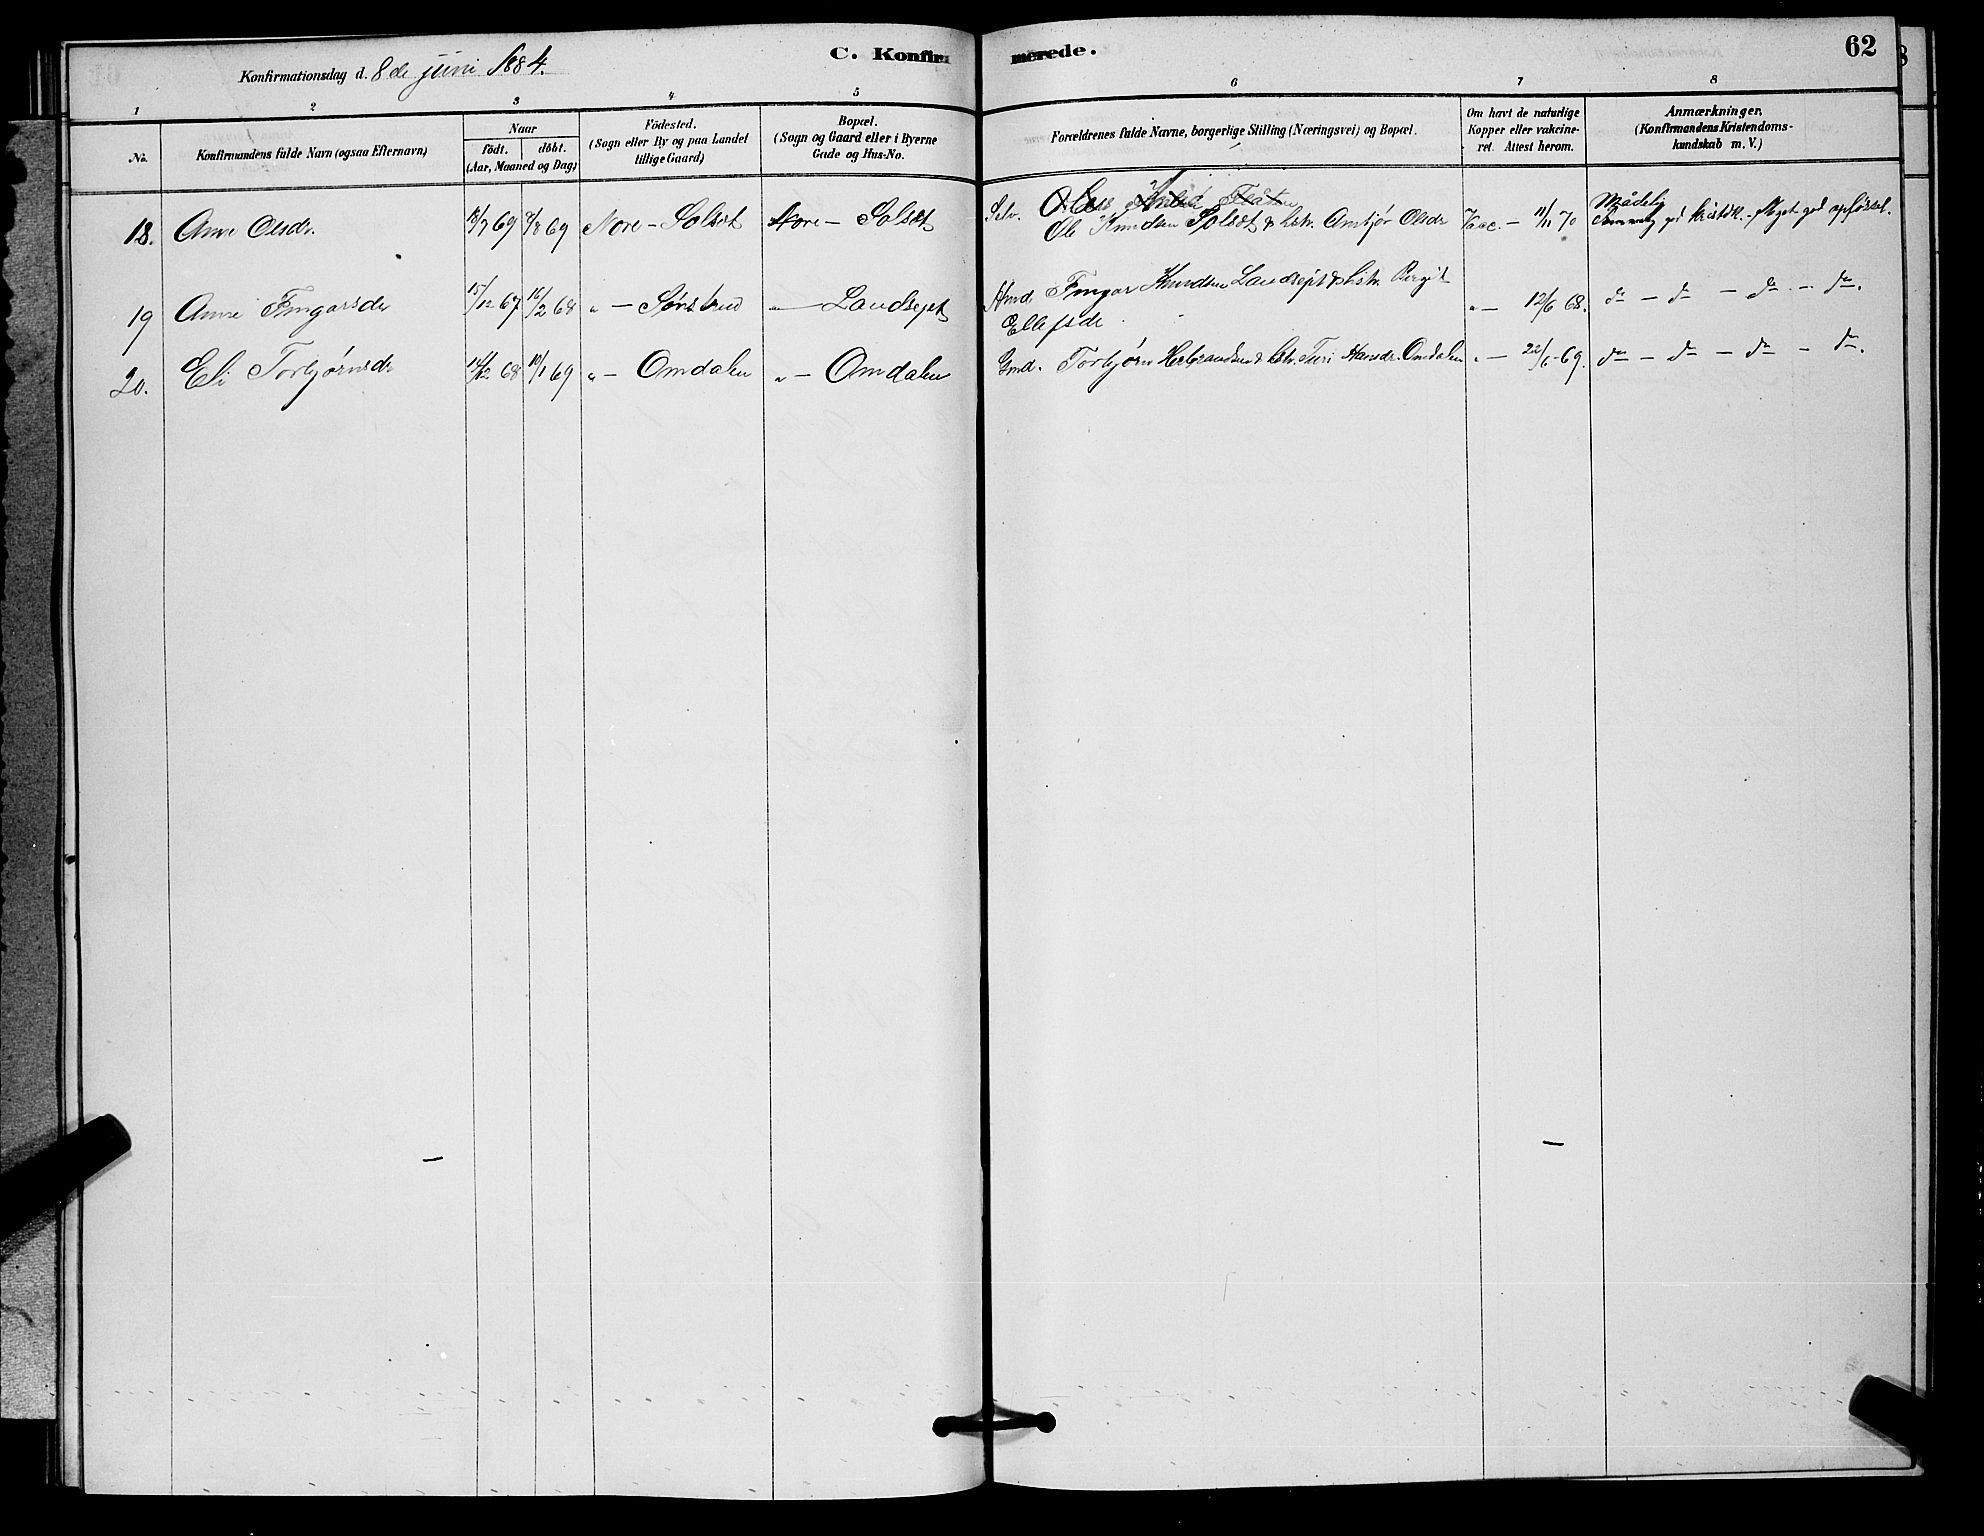 C. Konfirmerede.
62
Konfirmationsdag d. 8de juni 1884.
1 2 3 4 5 6 7 8
No.
Konfirmandens fulde Navn (ogsaa Efternavn)
Naar
födt. döbt.
(Aar, Maaned og Dag)
Födested.
(Sogn eller By og paa Landet
tillige Gaard)
Bopæl.
(Sogn og Gaard eller i Byerne
Gade og Hus-No.
Forældrenes fulde Navne, borgerlige Stilling (Næringsvei) og Bopæl.
Om havt de naturlige
Kopper eller vakcine-
ret. Attest herom.
Anmærkninger.
(Konfirmandens Kristendoms-
kundskab m. V.)
18. Anne Olsdr. 18/7 69 8/8 69 Nore - Solset Nore - Solset Selv. Ole Knudsen Solset & hstr. Anstjør Olsdr Vacc. - 11/11 70 Mådelig
kristdk. - Meget god opførsel.
19 Anne Fingarsdr 15/12 67 16/2 68 " - Sønstrud - Landsget Hmd. Fingar Knudsen Landsget & hstr. Birgit
Ellefsdr " - 12/6 68. do - do - do - do.
20. Eli Torbjørnsdr 14/12 68 10/1 69 " - Omdalen " - Omdalen Gmd. Torbjørn Herbrandsen & hstr. Turi Hansdr. Omdalen " - 22/6 69. do - do - do - do.